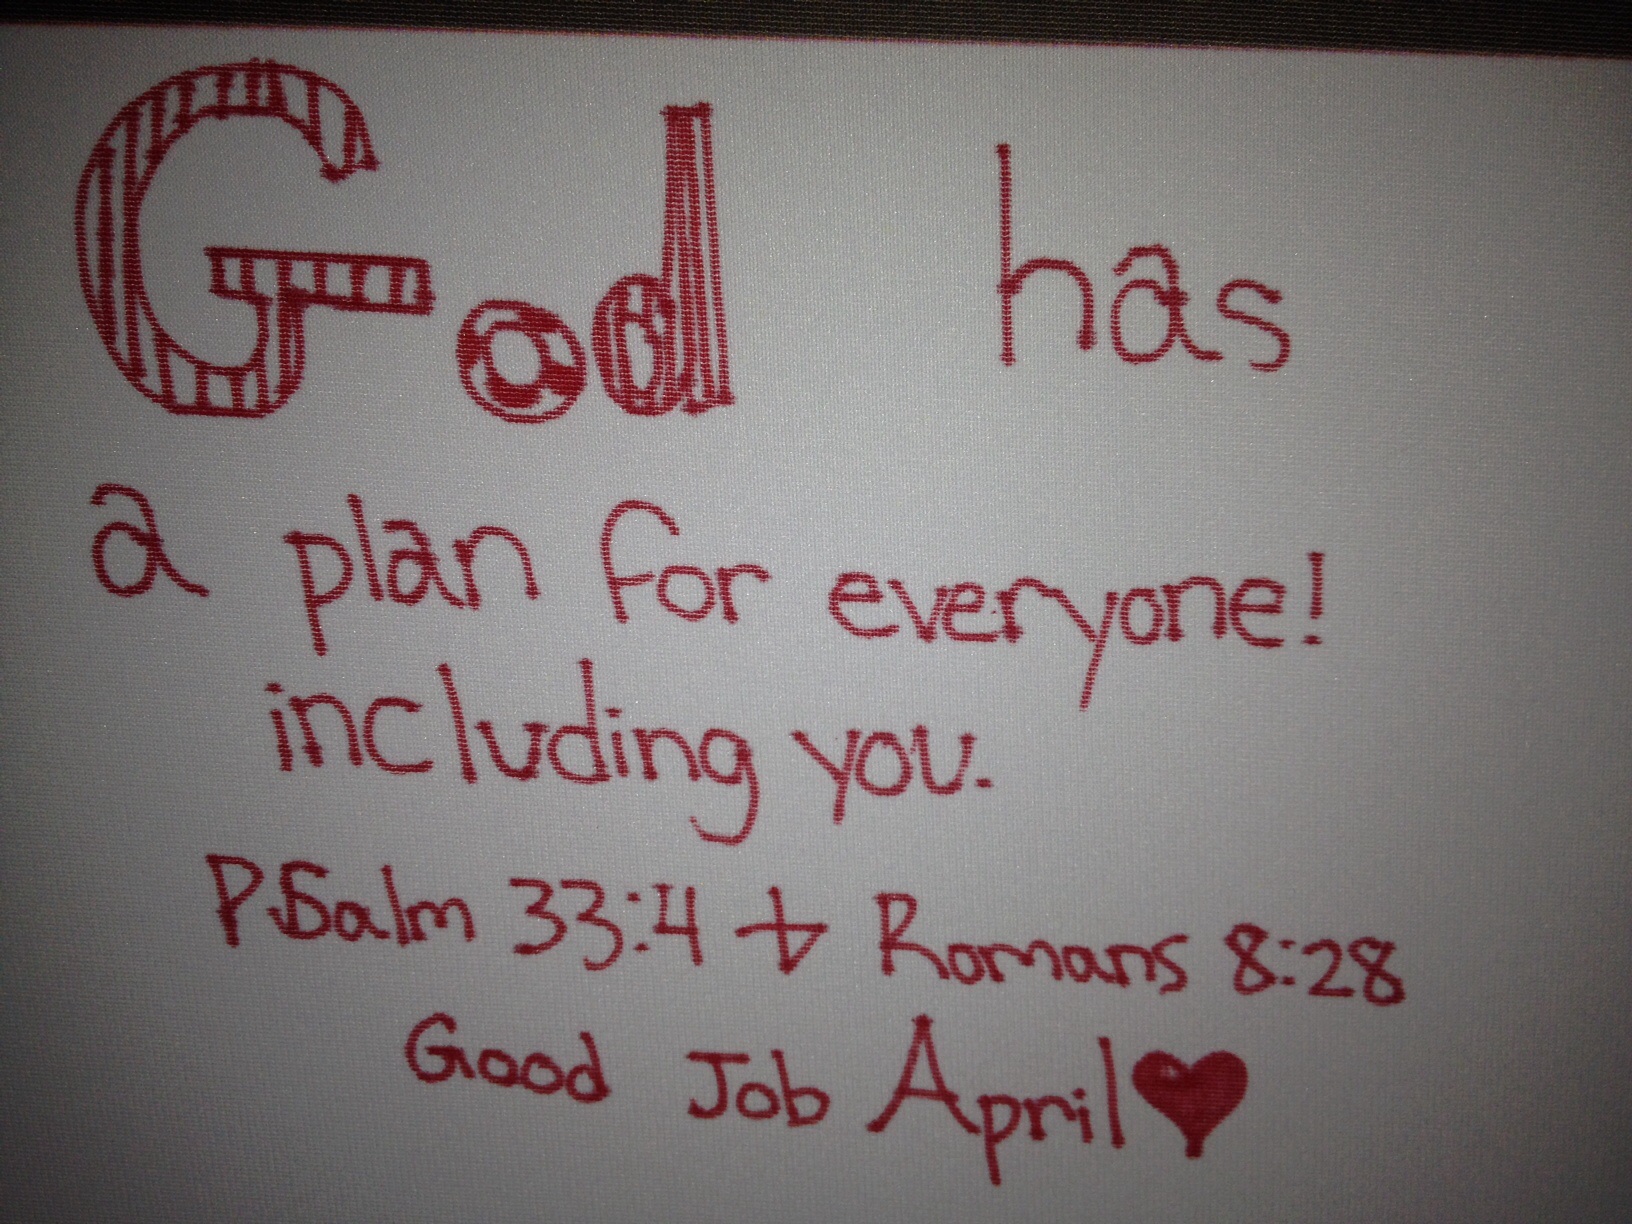 God has
a plan for everyone!
including you.
PSalm 33:4 + Romans 8:28
Good Job April♥